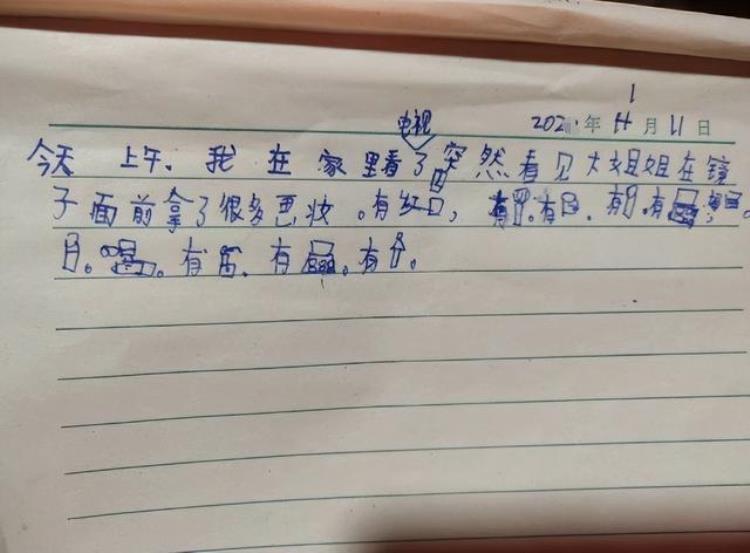 电视
202 年 11 月 11 日
今天 上午. 我在家里看了 突然看见大姐姐在镜
子面前拿了很多 妆。有红口, 有 。有 . 有 . 有
。 。有 . 有 。有 。